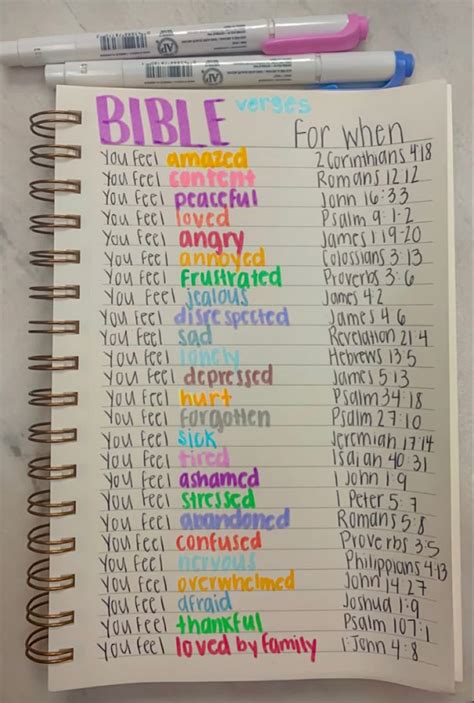 BIBLE verges For when
You feel amazed 2 Corinthians 4:18
You feel content Romans 12:12
You feel peaceful John 16:33
You feel loved Psalm 9:1-2
You feel angry James 1:19-20
You feel annoyed Colossians 3:13
You feel frustrated Proverbs 3:6
You feel jealous James 4:2
You feel disrespected James 4:6
You feel sad Revelation 21:4
You feel lonely Hebrews 13:5
You feel depressed James 5:13
You feel hurt Psalm 34:18
You feel forgotten Psalm 27:10
You feel sick Jeremiah 17:14
You feel tired Isaiah 40:31
You feel ashamed 1 John 1:9
You feel stressed 1 Peter 5:7
You feel abandoned Romans 5:8
You feel confused Proverbs 3:5
You feel nervous Philippians 4:13
You feel overwhelmed John 14:27
You feel afraid Joshua 1:9
You feel thankful Psalm 107:1
You feel loved by family 1 John 4:8